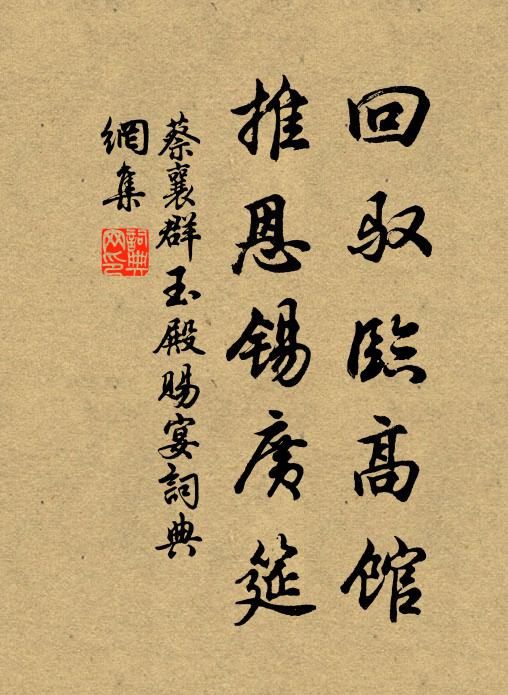 回驭臨高馆
推恩锡廣筵
蔡襄群玉殿赐宴詞典
網集
詞典
网印